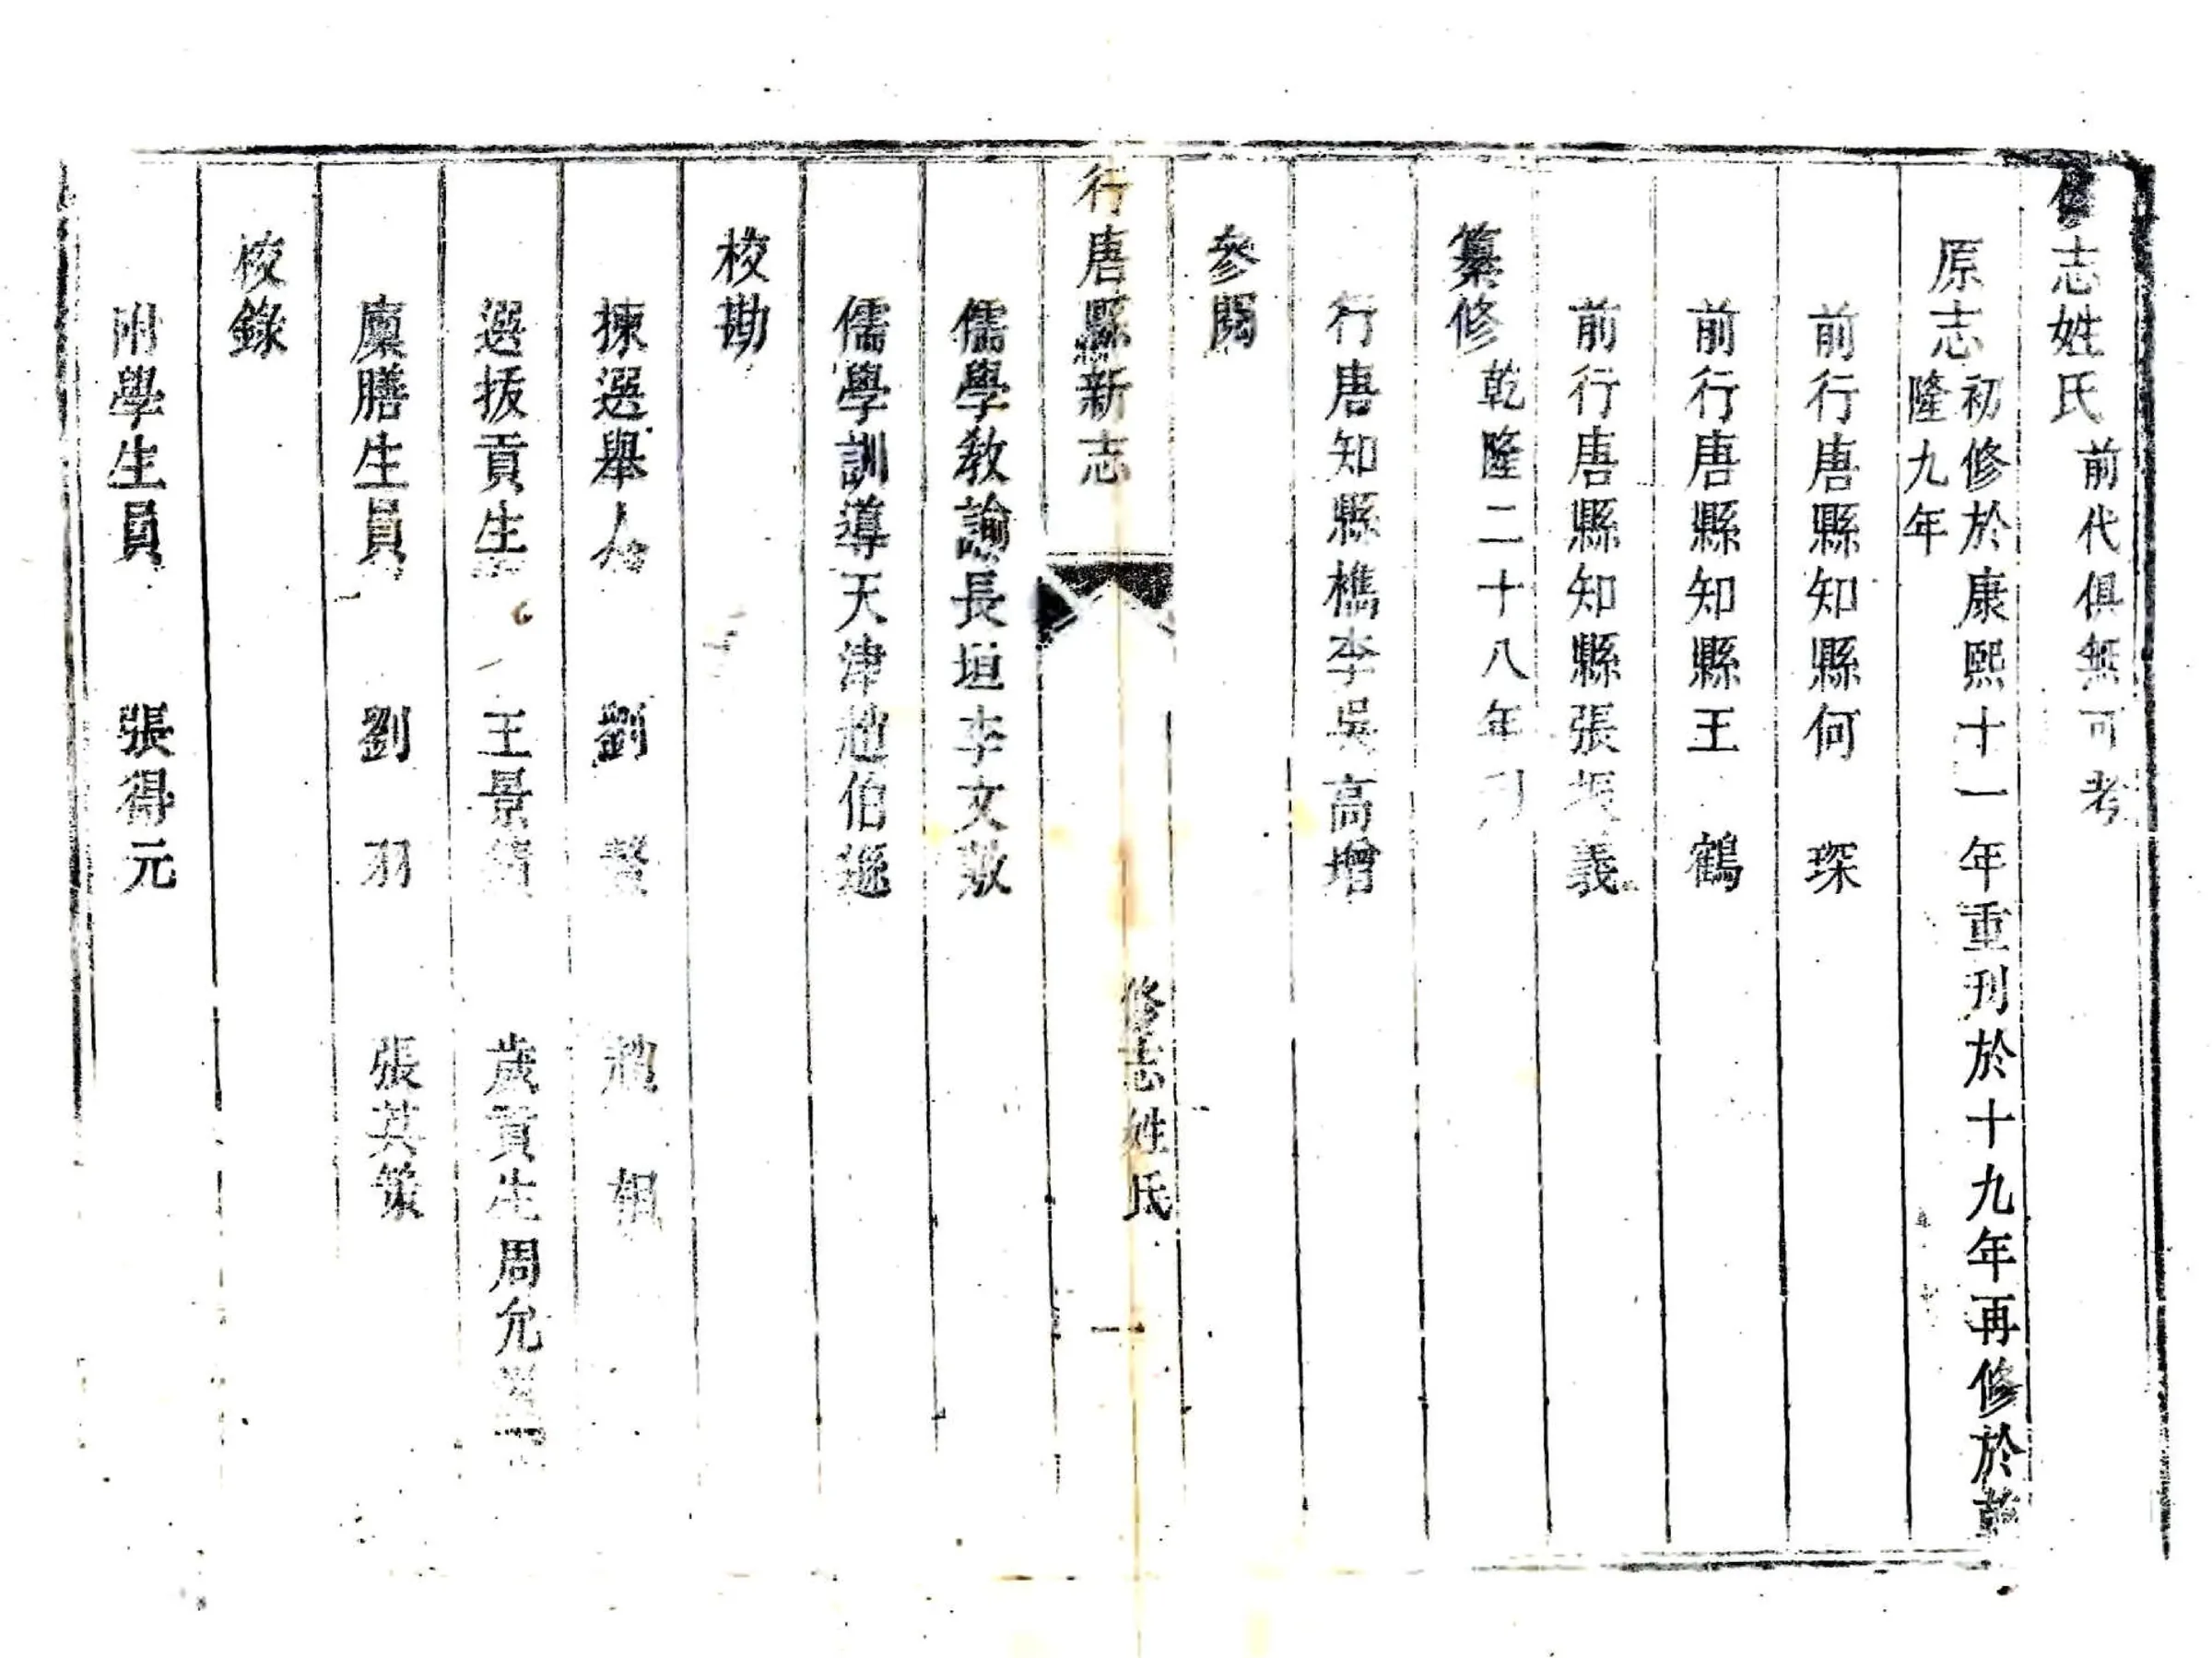 修志姓氏 前代俱無可考
原志 初修於康熙十一年重刊於十九年再修於乾
隆九年
前行唐縣知縣何 琛
前行唐縣知縣王 鶴
前行唐縣知縣張振義
纂修 乾隆二十八年刊
行唐知縣檇李吳高增
參閱
行唐縣新志 修志姓氏 一
儒學教諭長垣李文
儒學訓導天津趙伯遜
校勘
揀選舉人 劉 趙
選拔貢生 王景 歲貢生周允
廩膳生員 劉 羽 張其策
校錄
附學生員 張得元